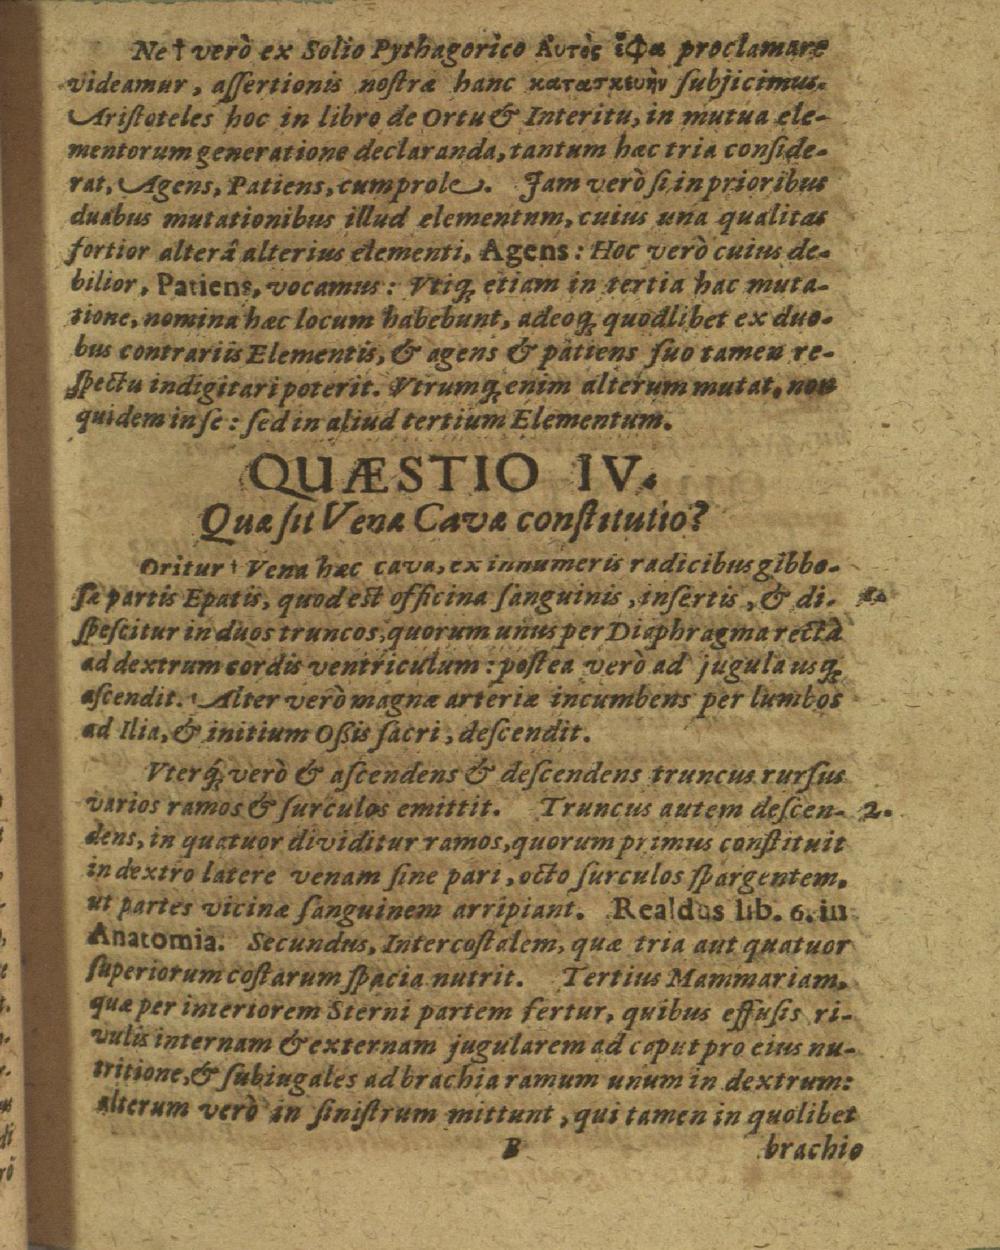 Ne† verò ex Solio Pythagorico Αυτὸς ἔφα proclamare
videamur, aſſertionis noſtræ hanc κατασκευὴν ſubjicimus.
Ariſtoteles hoc in libro de Ortu & Interitu, in mutua ele-
mentorum generatione declaranda, tantum hæc tria conſide-
rat, Agens, Patiens, cum prole. Jam verò ſi in prioribus
duabus mutationibus illud elementum, cuius una qualitas
fortior alterâ alterius elementi, Agens: Hoc verò cuius de-
bilior, Patiens, vocamus: Vtiq; etiam in tertia hac muta-
tione, nomina hæc locum habebunt, adeoq; quodlibet ex duo-
bus contrariis Elementis, & agens & patiens ſuo tamen re-
ſpectu indigitari poterit. Vtrumq; enim alterum mutat, non
quidem in ſe: ſed in aliud tertium Elementum.
QUÆSTIO IV.
Quæ ſit Venæ Cavæ conſtitutio?
Oritur† Vena hæc cava, ex innumeris radicibus gibbo-
ſæ partis Epatis, quod eſt officina ſanguinis, inſertis, & di-
ſpeſcitur in duos truncos, quorum unus per Diaphragma rectà
ad dextrum cordis ventriculum: poſtea verò ad jugula usq;
aſcendit. Alter verò magnæ arteriæ incumbens per lumbos
ad Ilia, & initium Oſsis ſacri, deſcendit.
Vterq; verò & aſcendens & deſcendens truncus rurſus
varios ramos & ſurculos emittit. Truncus autem deſcen- 2.
dens, in quatuor dividitur ramos, quorum primus conſtituit
in dextro latere venam ſine pari, octo ſurculos ſpargentem,
ut partes vicinæ ſanguinem arripiant. Realdus lib. 6. in
Anatomia. Secundus, Intercoſtalem, quæ tria aut quatuor
ſuperiorum coſtarum ſpacia nutrit. Tertius Mammariam,
quæ per interiorem Sterni partem fertur, quibus effuſis ri-
vulis internam & externam jugularem ad caput pro eius nu-
tritione, & ſubiugales ad brachia ramum unum in dextrum:
alterum verò in ſiniſtrum mittunt, qui tamen in quolibet
B brachio